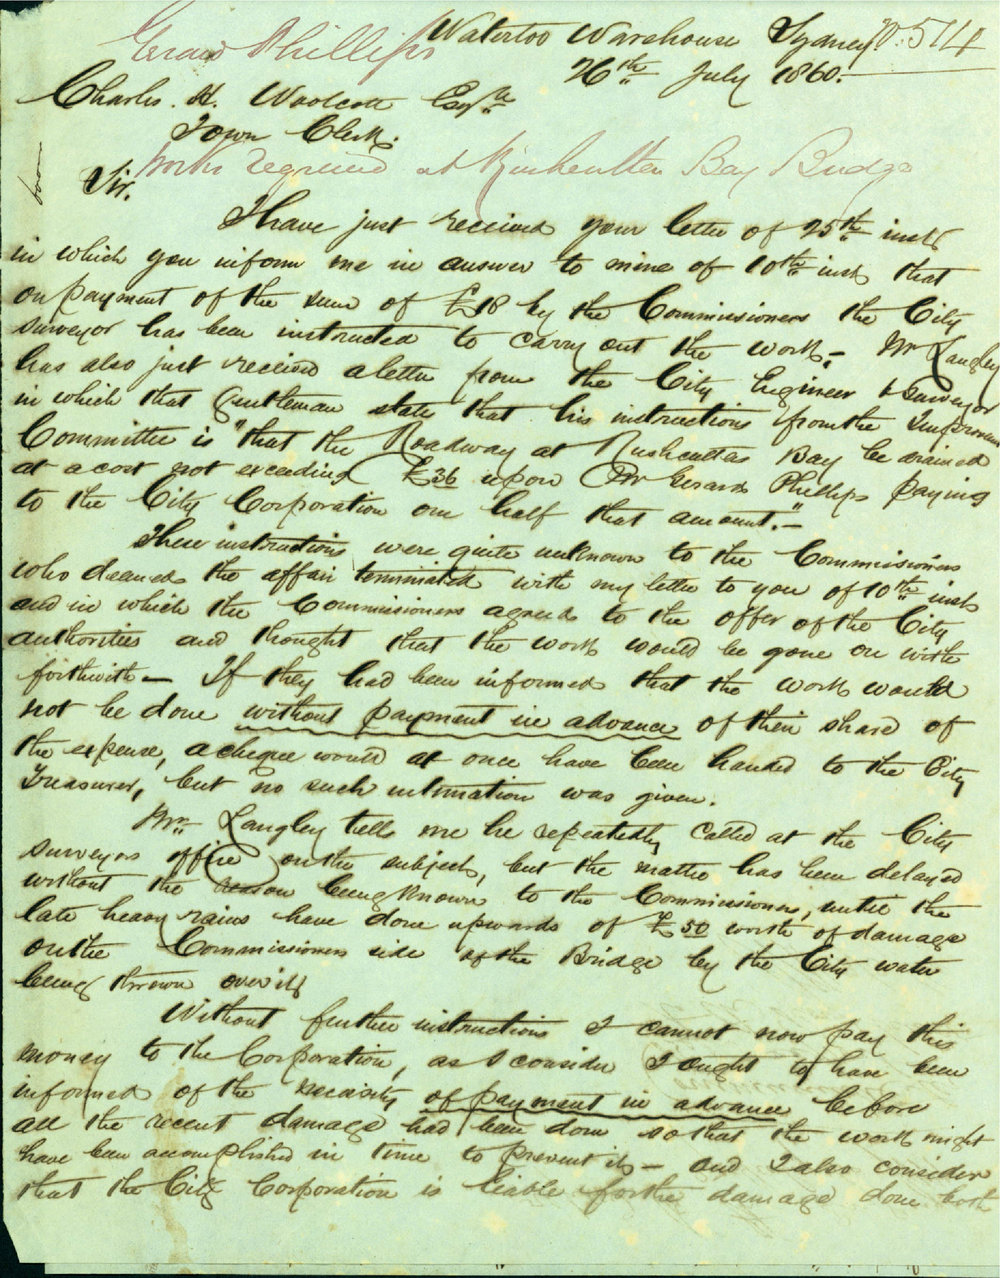 Waterloo Warehouse Sydney
No. 514
Gerard Phillips
26th July 1860.
Charles H. Woolcott Esqre
Town Clerk.
Works required at Rushcutters Bay Bridge
Sir.
I have just received your letter of 25th inst
in which you inform me in answer to mine of 10th inst that
on payment of the sum of £18 by the Commissioners the City
Surveyor has been instructed to carry out the work. – Mr Langley
has also just received a letter from the City Engineer & Surveyor
in which that Gentleman state that his instructions from the Improvement
Committee is "that the Roadway at Rushcutters Bay be drained
at a cost not exceeding £36 upon Mr Gerard Phillips paying
to the City Corporation one half that amount." –
These instructions were quite unknown to the Commissioners
who deemed the affair terminated with my letter to you of 10th inst
and in which the Commissioners agreed to the offer of the City
authorities and thought that the work would be gone on with
forthwith – If they had been informed that the work would
not be done without payment in advance of their share of
the expense, a cheque would at once have been handed to the City
Treasurer, but no such intimation was given.
Mr Langley tells me he repeatedly called at the City
Surveyors office on the subject, but the matter has been delayed
without the reason being known to the Commissioners, until the
late heavy rains have done upwards of £50 worth of damage
on the Commissioners side of the Bridge by the City water
being thrown over it
Without further instructions I cannot now pay this
money to the Corporation, as I consider I ought to have been
informed of the necessity of payment in advance before
all the recent damage had been done so that the work might
have been accomplished in time to prevent it – and I also consider
that the City Corporation is liable for the damage done both